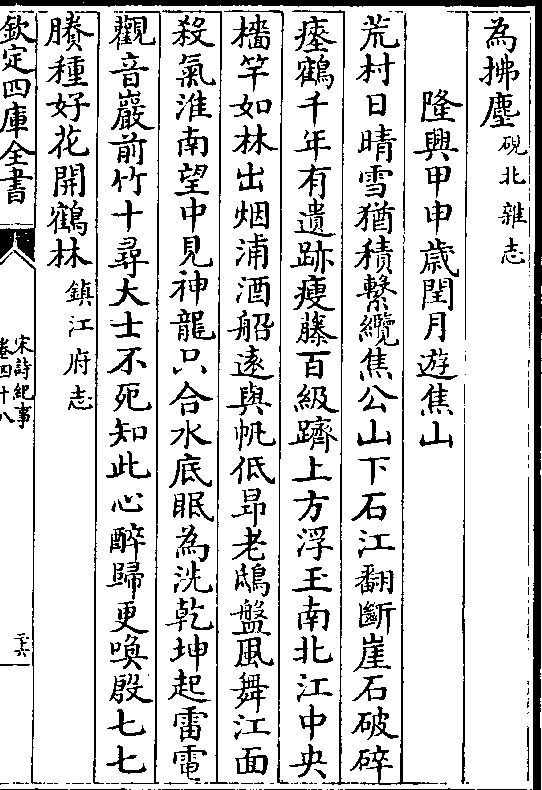 為拂塵硯北雜志
隆興甲申歲閏月遊焦山
荒村日晴雪猶積繫纜焦公山下石江翻斷崖石破碎
瘞鶴千年有遺跡瘦藤百級躋上方浮玉南北江中央
檣竿如林出烟浦酒船遠與帆低昂老鴟盤風舞江面
殺氣淮南望中見神龍只合水底眠為洗乾坤起雷電
觀音巖前竹十尋大士不死知此心醉歸更喚殷七七
賸種好花開鶴林鎮江府志
欽定四庫全書
宋詩紀事
卷四十八
二十六